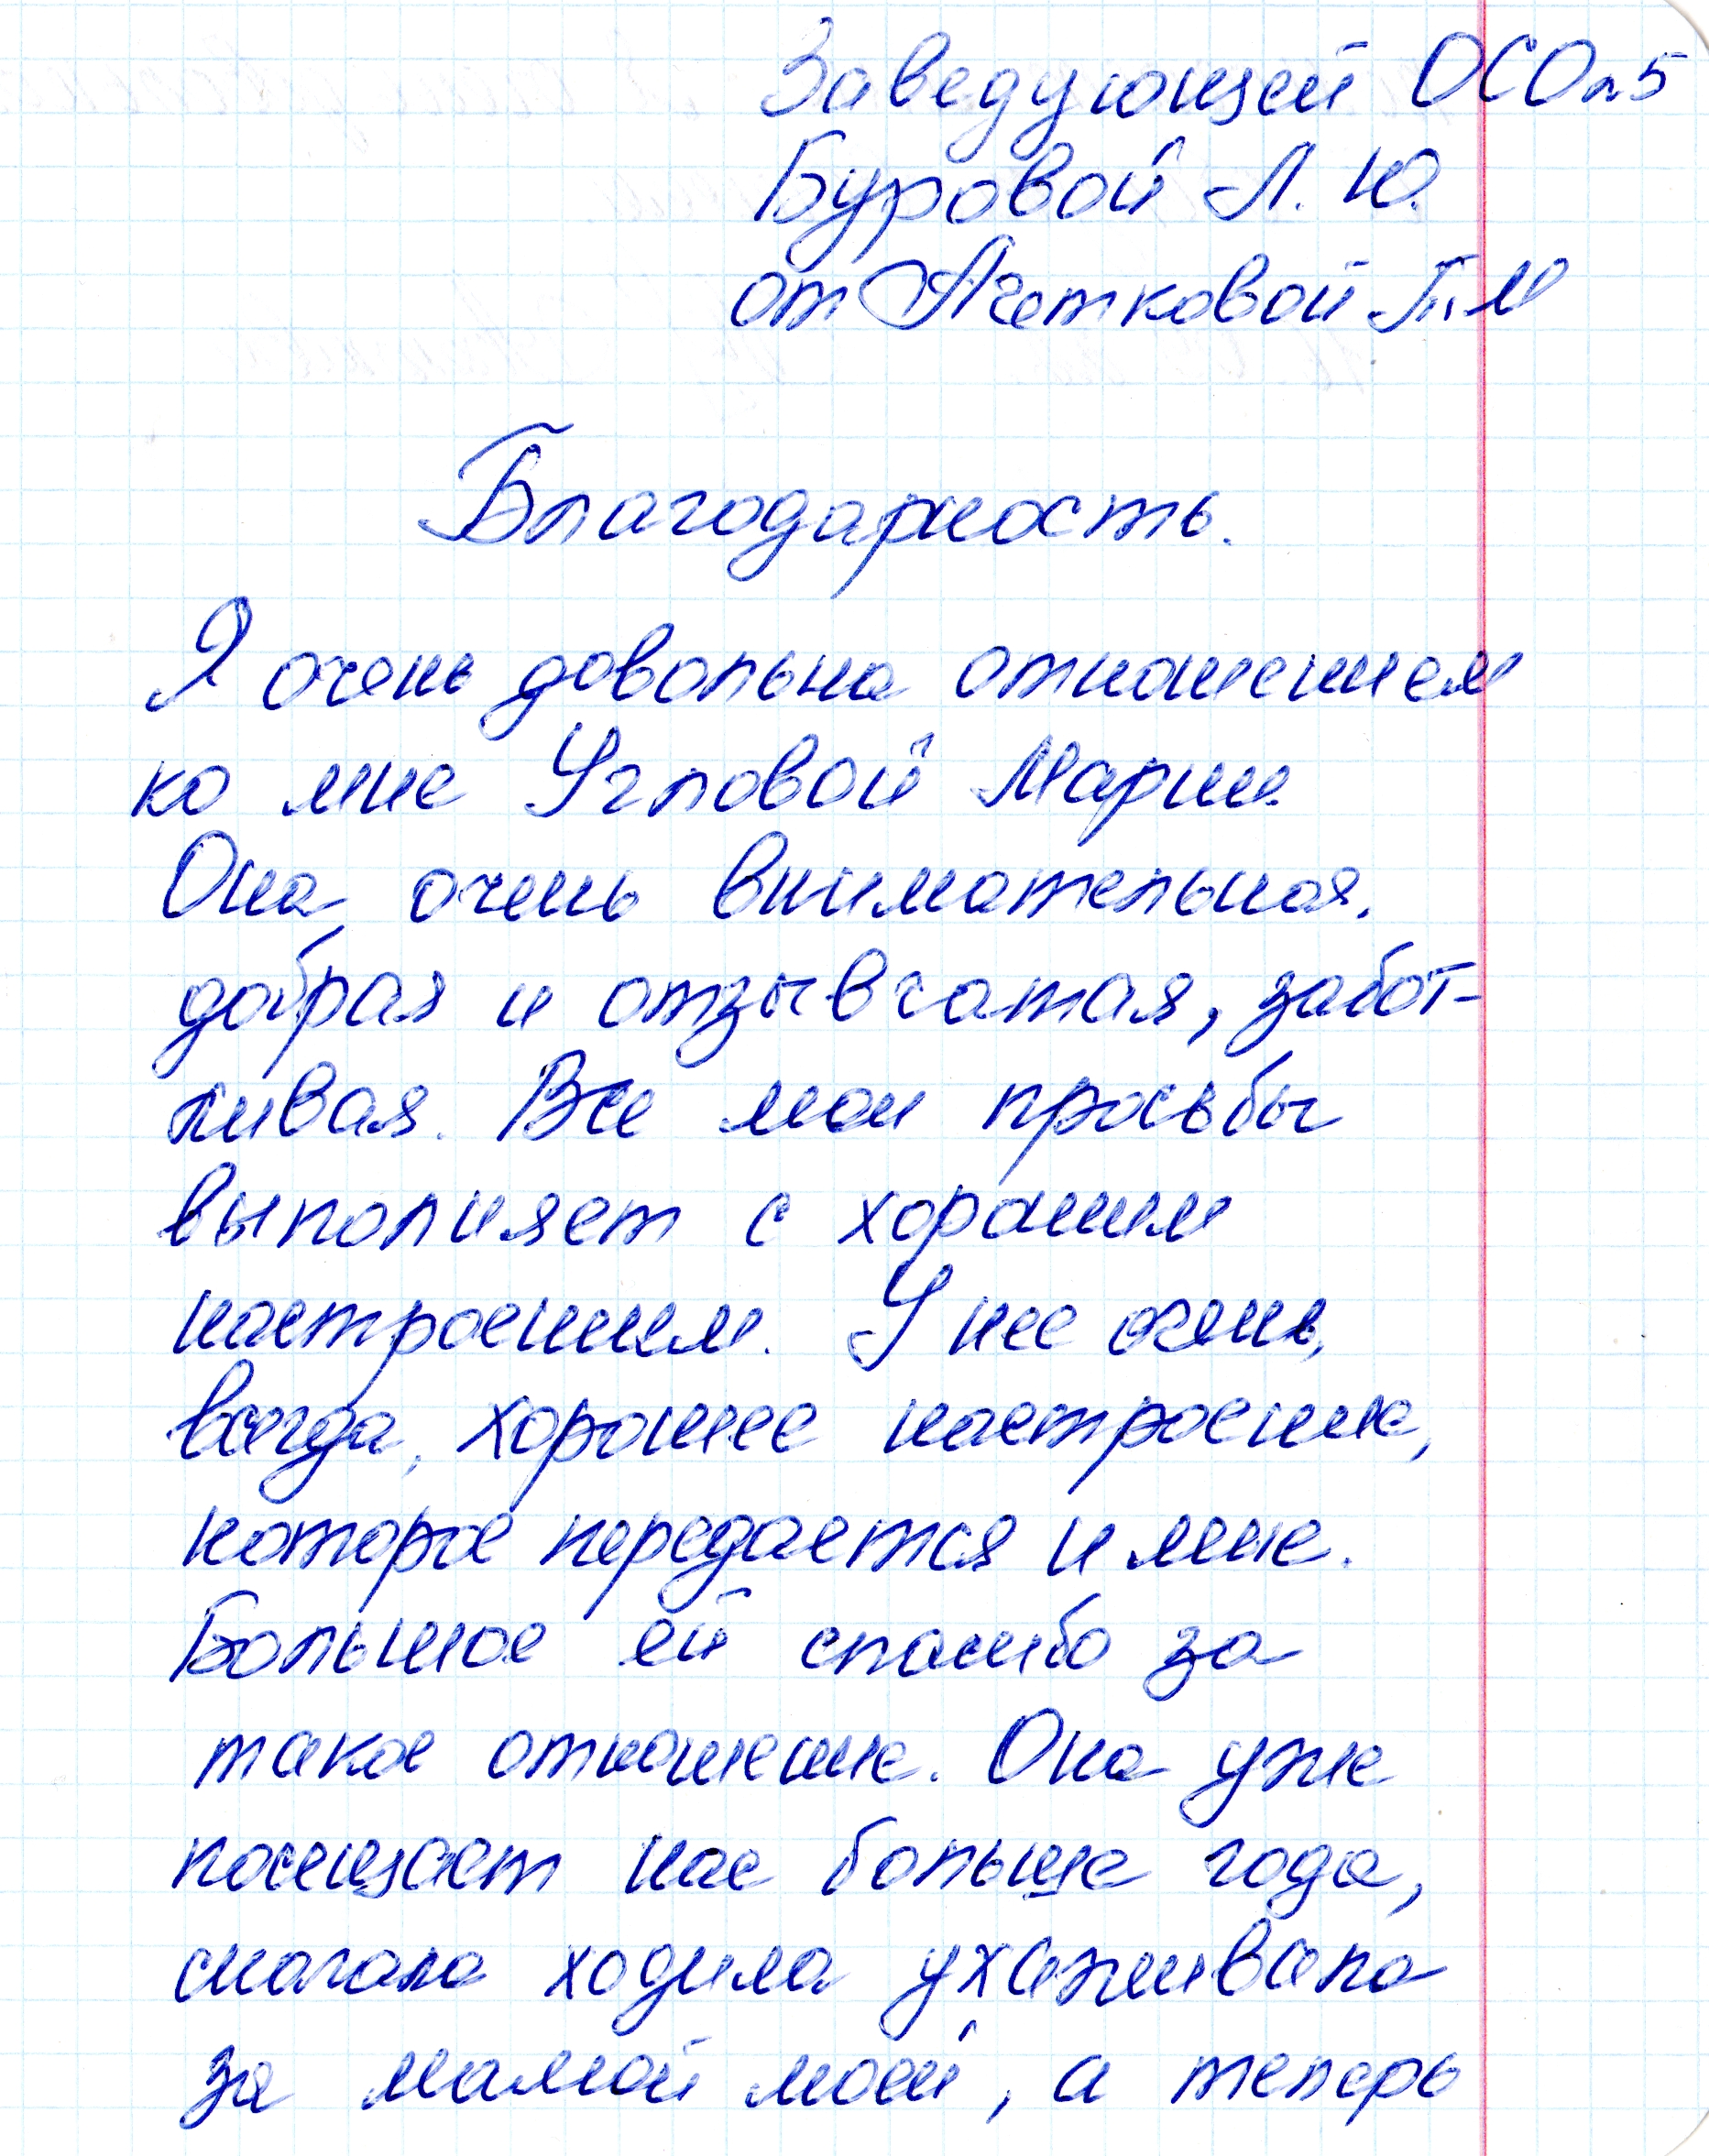 Заведующей ОСО №5
Буровой Л. Ю.
от Ачетковой Т.М
Благодарность.
Я очень довольна отношением
ко мне Угловой Марии.
Она очень внимательная,
добрая и отзывчатая, забот-
ливая. Все мои просьбы
выполняет с хорошим
настроением. У нее очень,
всегда, хорошее настроение,
которое передается и мне.
Большое ей спасибо за
такое отношение. Она уже
посещает нас больше года,
сначала ходила ухаживала
за мамой моей, а теперь